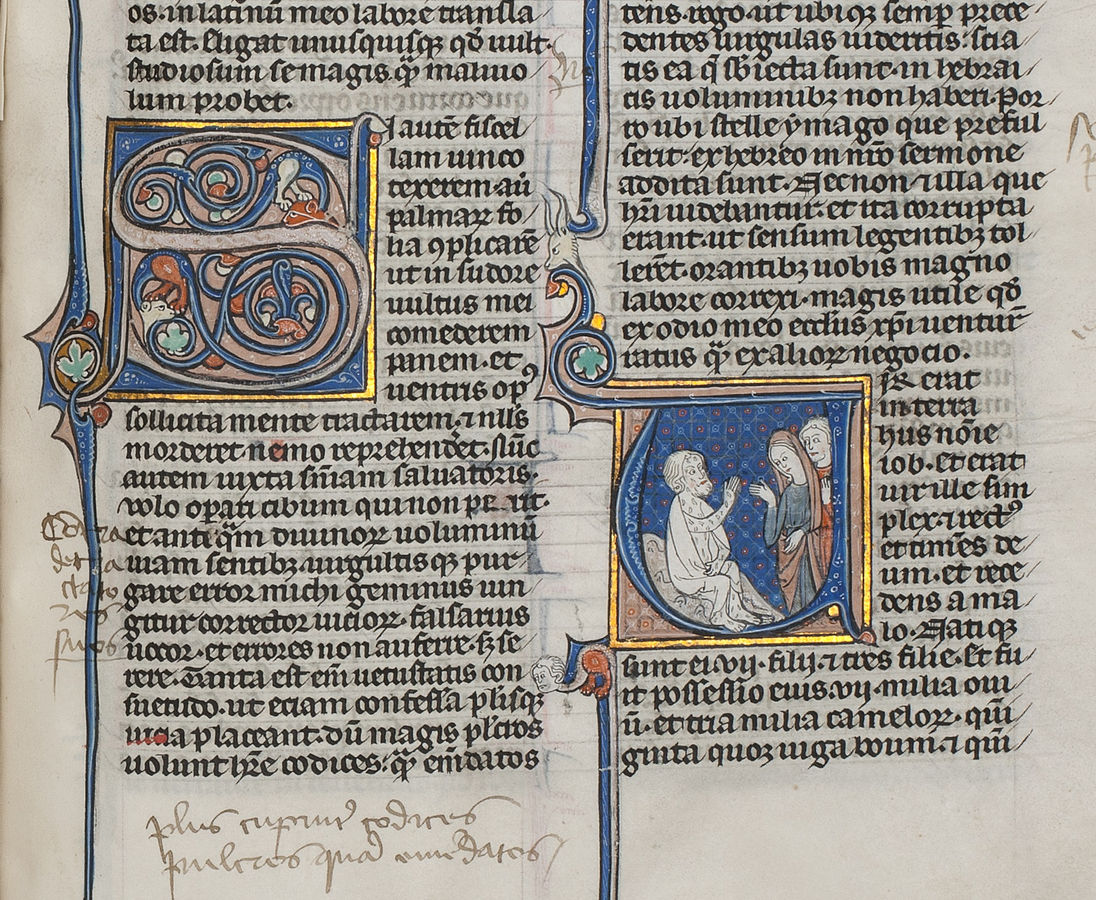 os. in latinū meo labore transla
ta est. Eligat unusquisq; qđ uult.
studiosum se magis. q̄ꝫ maliuo
lum probet.
Si autē fiscel
lam iunco
texerem. aū
palmaꝝ fo
lia ꝯplicarē
ut in sudore
uultus mei
comederem
panem. et
uentris opꝰ
sollicita mente tractarem. ⁊ nll's
morderet nemo reprehenderet. Nūc
autem iuxta sn̄iam saluatoris.
uolo opari cibum qui non perit.
et antiq̄m diuinoꝝ uoluminū
uiam sentibꝫ uirgultisqꝫ pur
gare error michi geminus iun
gitur corrector uicioꝝ. falsarius
uocor. et errores non auferre. sꝫ se
rere. Tanta est eni uetustatis con
suetudo. ut eciam confessa plisqꝫ
uicia placeant. dū magis pulcros
uolunt hr̄e codices. q̄ꝫ emēdatos
plus cupiunt codices
pulcros quā emēdatos
tens. rogo. ut ubiqꝫ semp̄ prece
dentes uirgulas uideritis: scia
tis ea q̄ sb'iecta sunt. in hebrai
cis uoluminibꝫ non haberi. Por
ro ubi stelle ymago que preful
serit: ex hebreo in nr̄o sermone
addita sunt. Necnon ⁊ illa que
hr̄i uidebantur. et ita corrupta
erant. ut sensum legentibꝫ tol
lerēt. orantibꝫ uobis magno
labore correxi. magis utile qđ
ex odio meo eccl'iis xp̄i uenturū
ratus q̄ꝫ ex alioꝝ negocio.
Uir erat
in terra
hus noīe
iob. et erat
uir ille sim
plex. ⁊ rectꝰ
et timēs de
um. et rece
dens a ma
lo. Natiqꝫ
sunt ei. vii. filii. ⁊ tres filie. Et fu
it possessio eius. vii. milia oui
ū. et tria milia cameloꝝ. quī
ginta quoqꝫ iuga boum. ⁊ quī